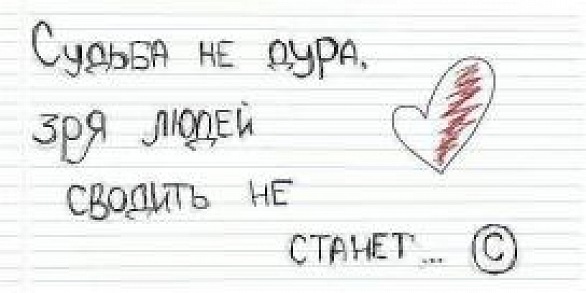 Судьба не дура,
зря людей
сводить не
станет... ©